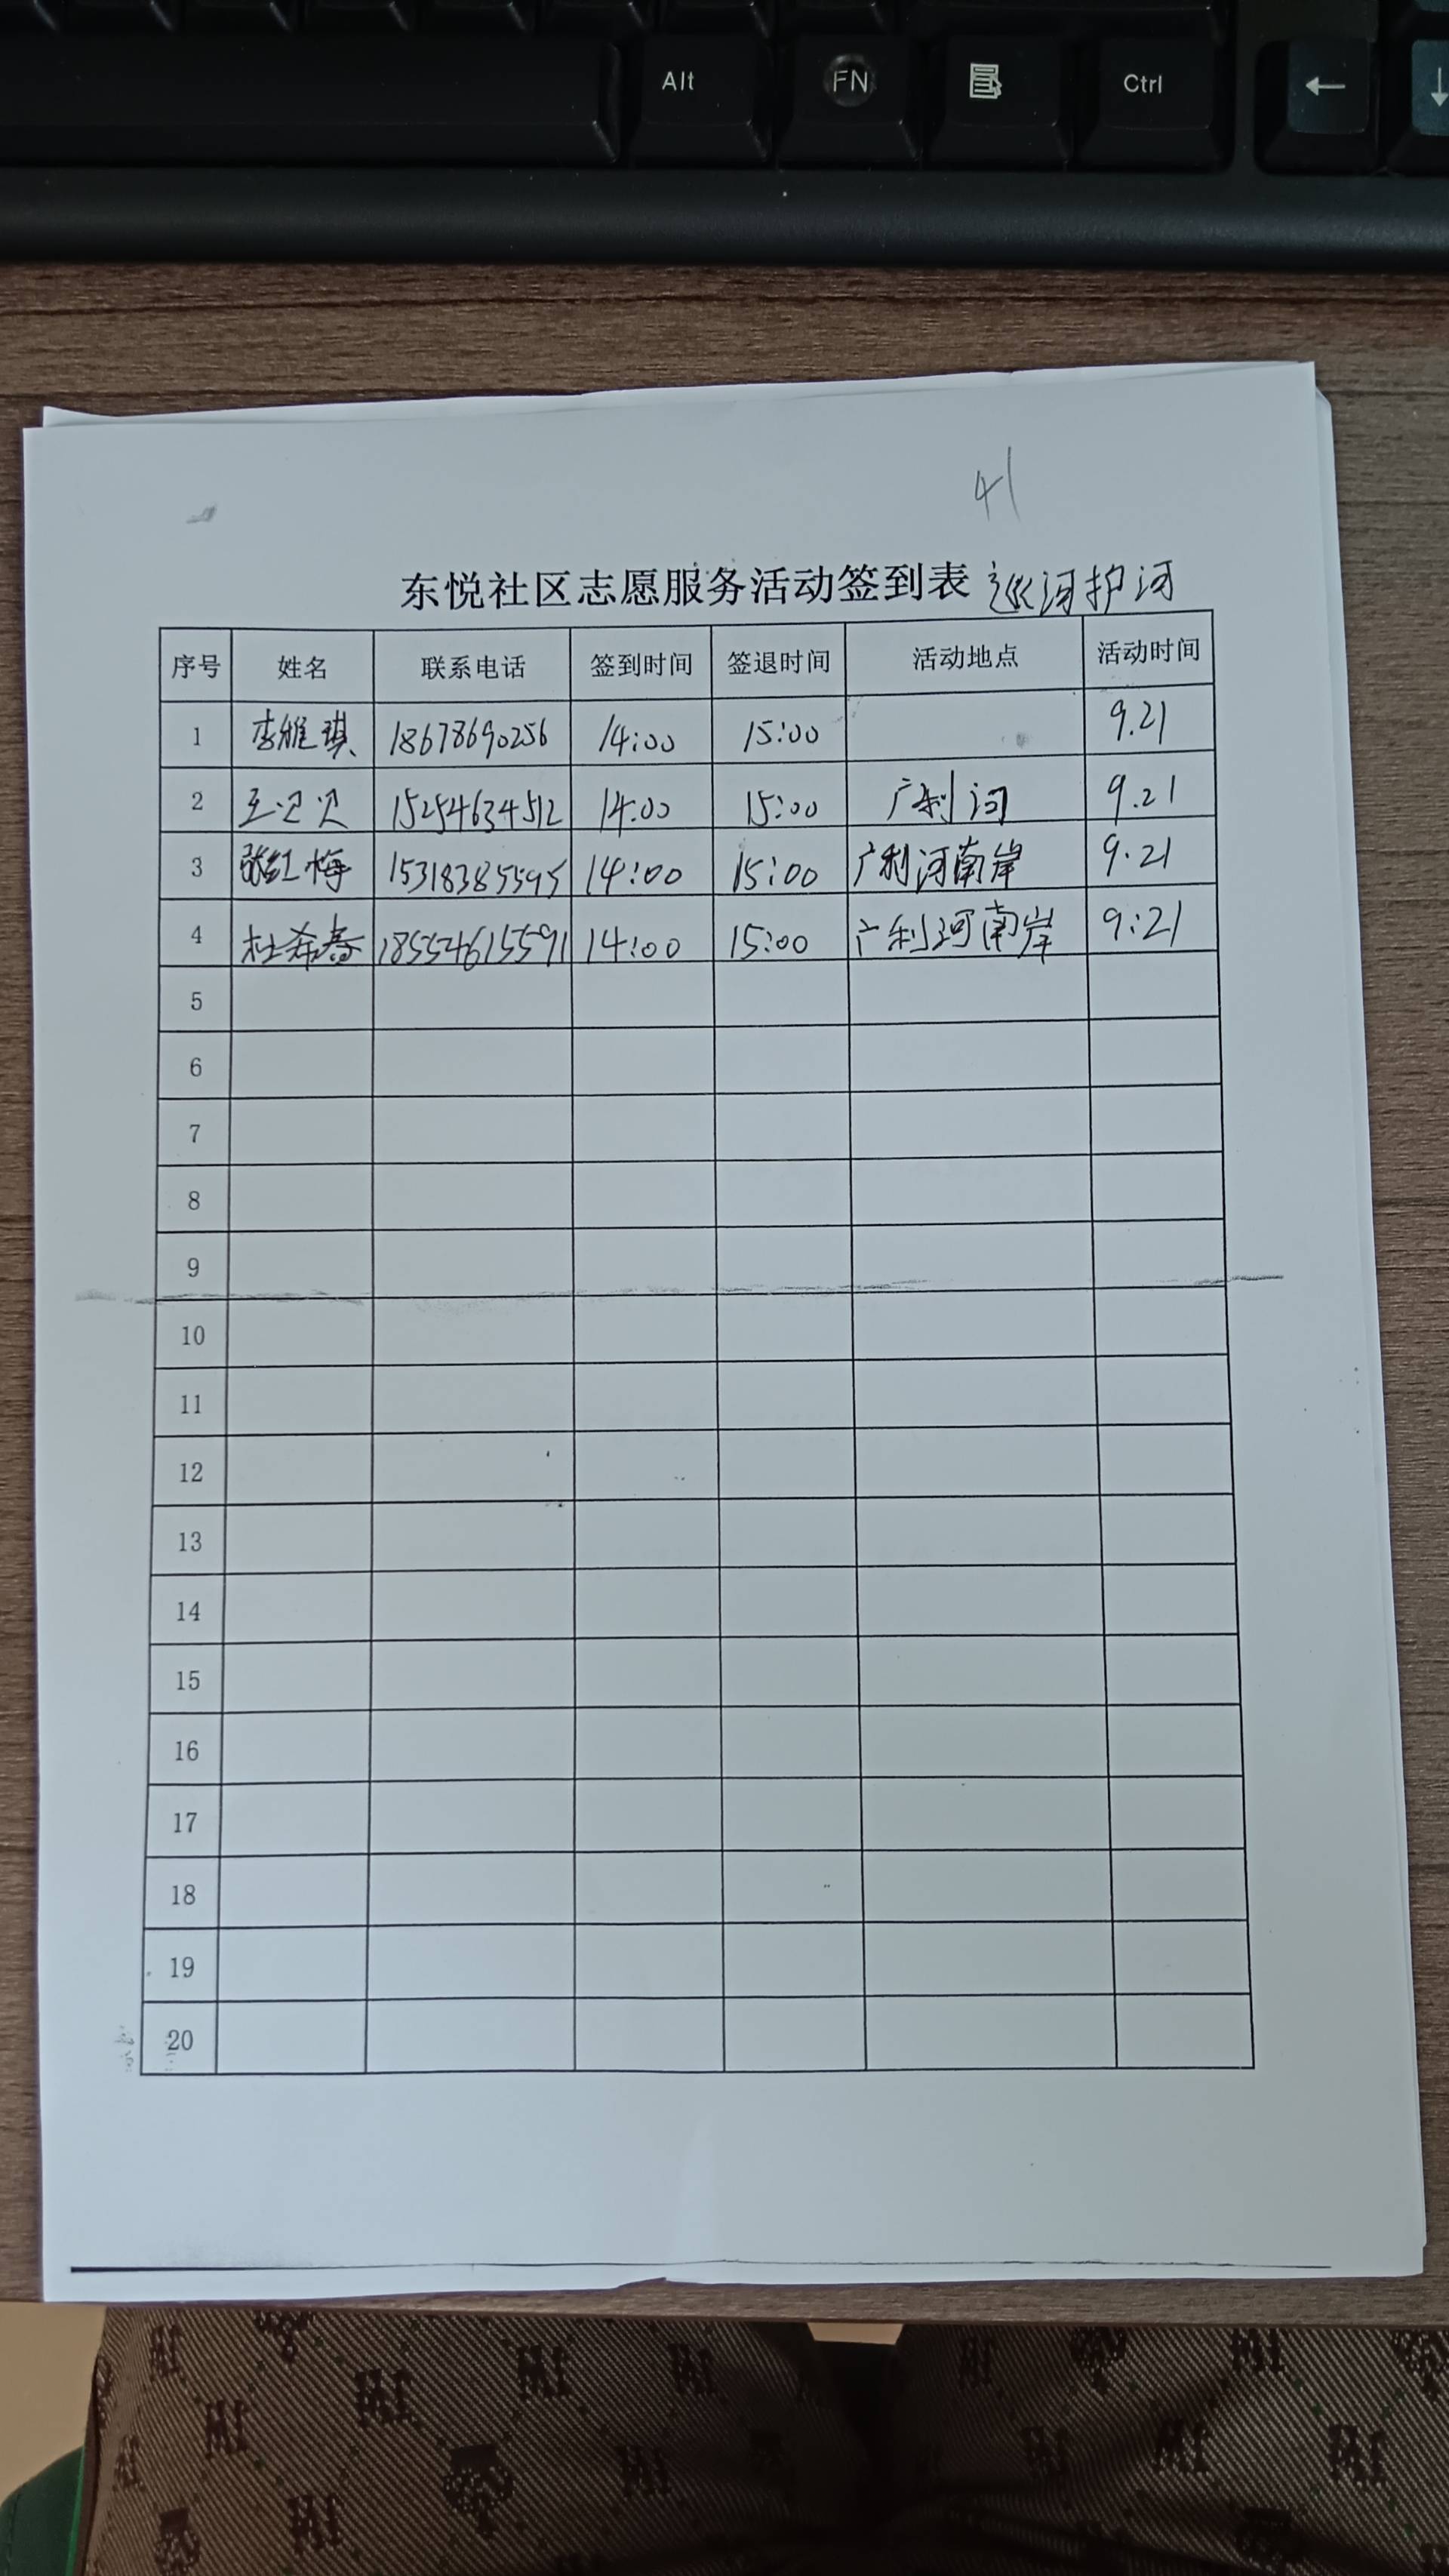 Alt FN Ctrl ← ↓
41
东悦社区志愿服务活动签到表 巡河护河
序号 姓名 联系电话 签到时间 签退时间 活动地点 活动时间
1 李雅琪 18678690256 14:00 15:00 9.21
2 15254634512 14:00 15:00 广利河 9.21
3 张红梅 15318385595 14:00 15:00 广利河南岸 9.21
4 杜希春 18554615591 14:00 15:00 广利河南岸 9:21
5
6
7
8
9
10
11
12
13
14
15
16
17
18
19
20